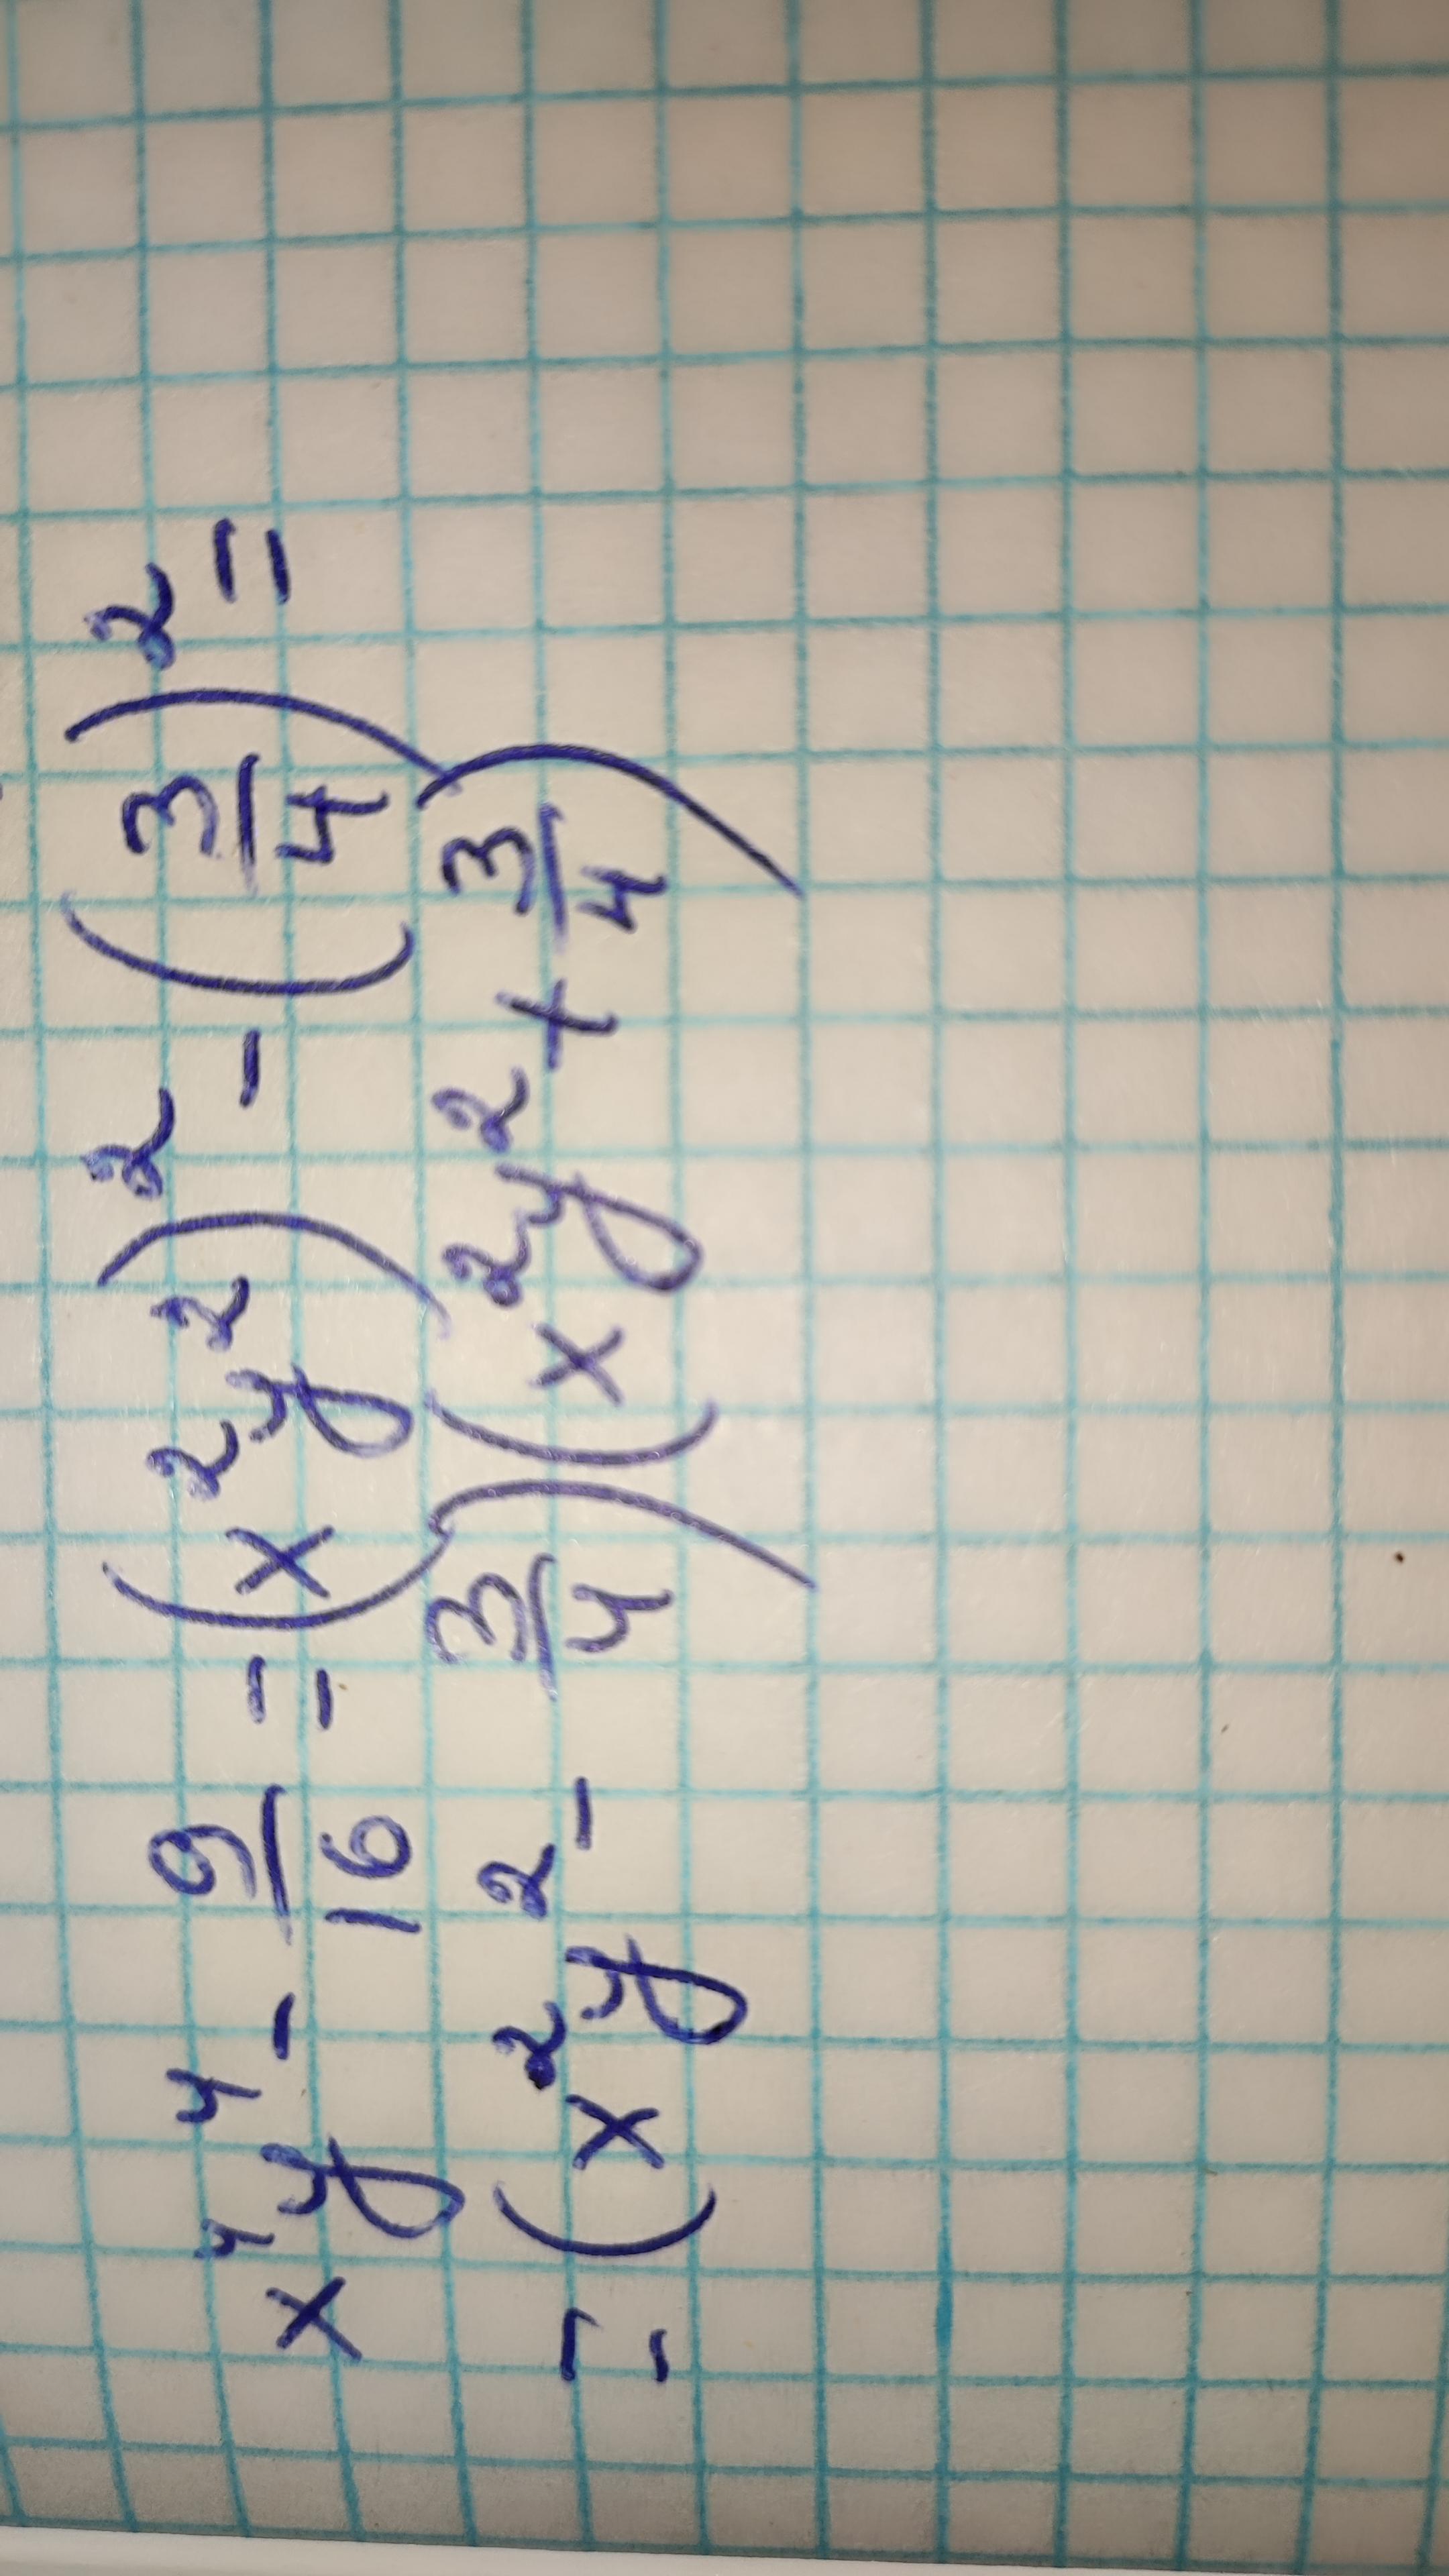 x⁴y⁴ - 9/16 = (x²y²)² - (3/4)² =
= (x²y² - 3/4)(x²y² + 3/4)